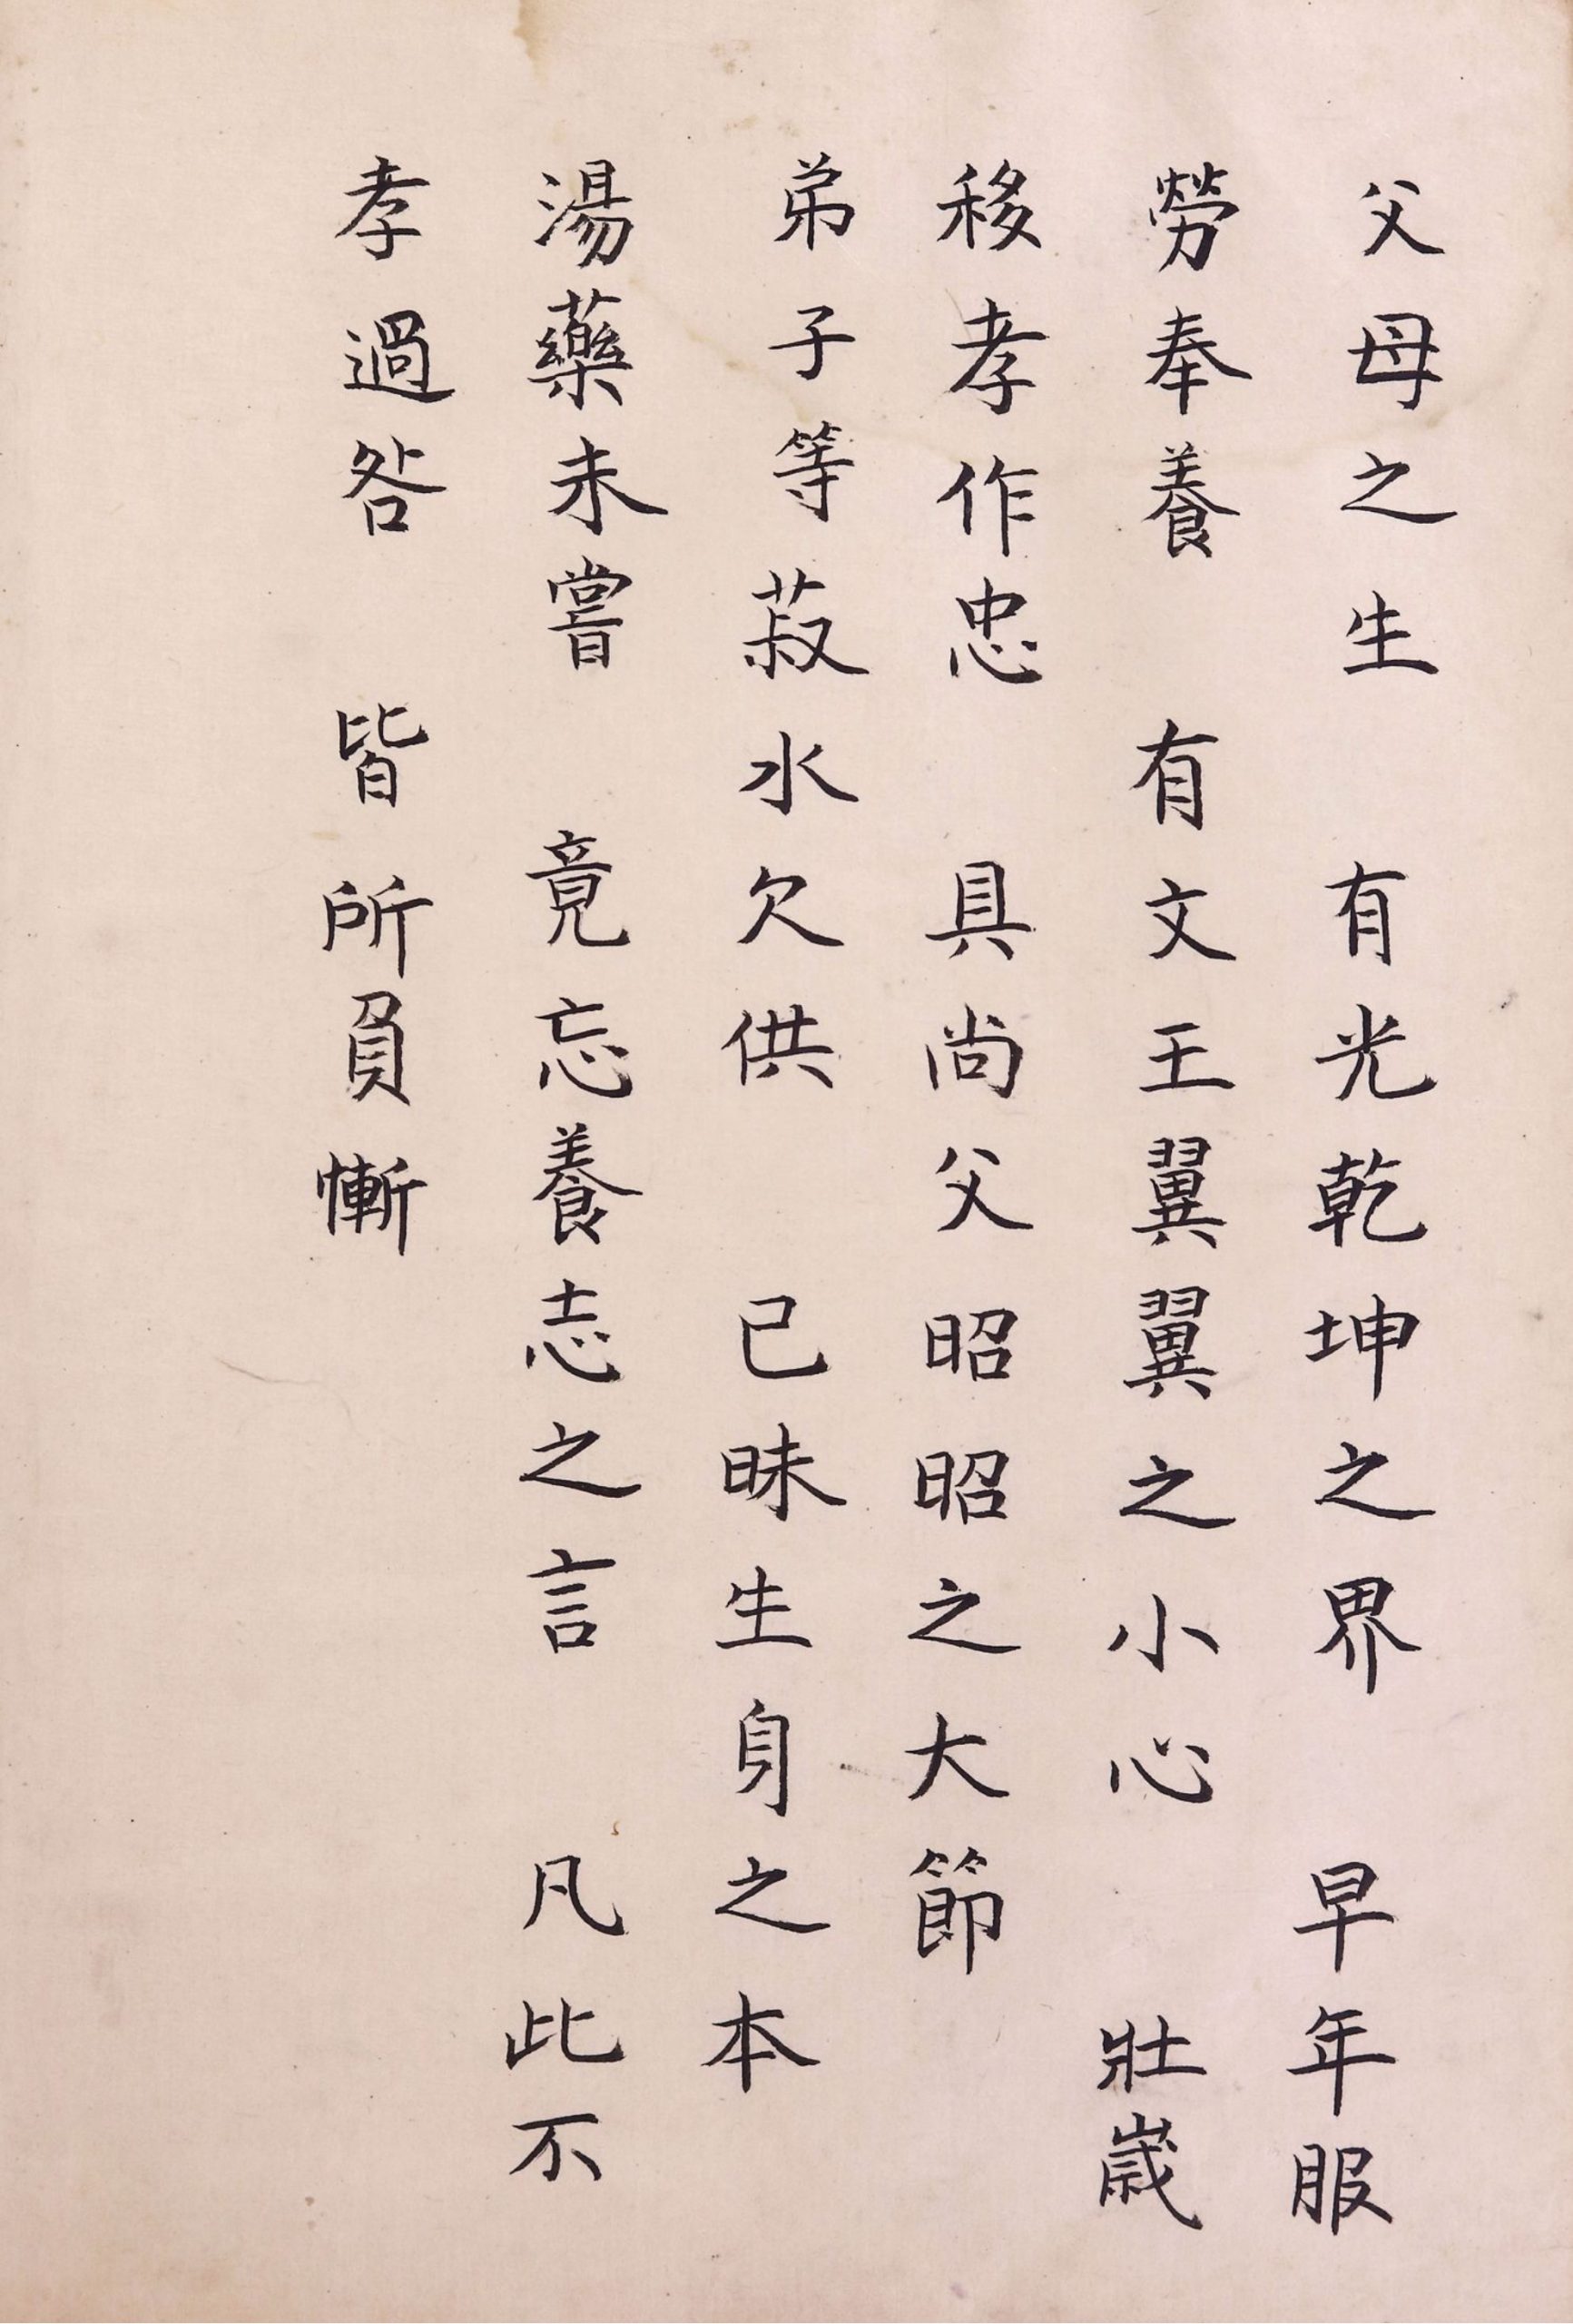 父母之生　有光乾坤之界　早年服
勞奉養　有文王翼翼之小心　壯歲
移孝作忠　具尚父昭昭之大節
弟子等菽水欠供　已昧生身之本
湯藥未嘗　竟忘養志之言　凡此不
孝過咎　皆所負慚